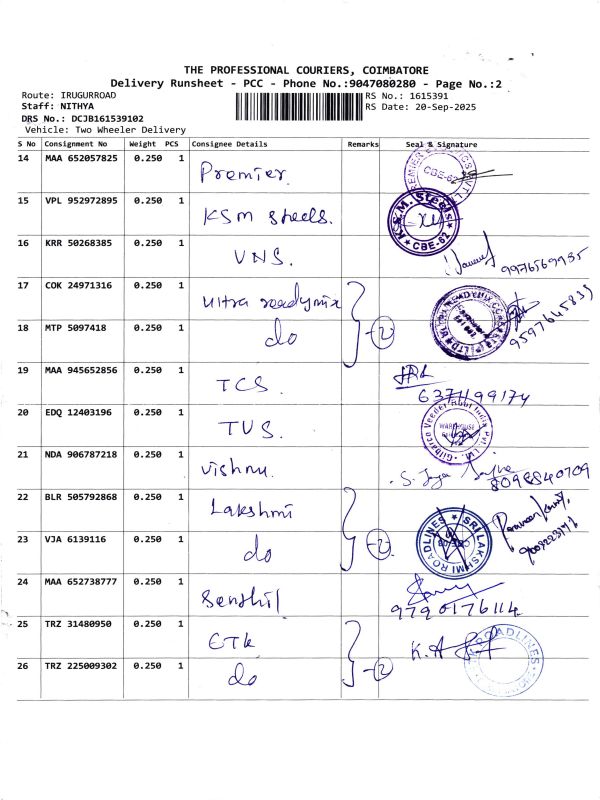 THE PROFESSIONAL COURIERS, COIMBATORE
Delivery Runsheet - PCC - Phone No.:9047080280 - Page No.:2
Route: IRUGURROAD
Staff: NITHYA
DRS No.: DCJB161539102
Vehicle: Two Wheeler Delivery
RS No.: 1615391
RS Date: 20-Sep-2025
S No Consignment No Weight PCS Consignee Details Remarks Seal & Signature
14 MAA 652057825 0.250 1 Premier. CBE-62
15 VPL 952972895 0.250 1 KSM steels. K.S.M. Steels CBE-62
16 KRR 50268385 0.250 1 VNS. 9976569935
17 COK 24971316 0.250 1 Ultra readymix
18 MTP 5097418 0.250 1 do 2 9597645833
19 MAA 945652856 0.250 1 TCS. 6371199174
20 EDQ 12403196 0.250 1 TVS. Gilbarco Veeder Root India Pvt. Ltd. WAREHOUSE
21 NDA 906787218 0.250 1 Vishnu. S. Jaya 8098840709
22 BLR 505792868 0.250 1 Lakshmi
23 VJA 6139116 0.250 1 do 2 SRI LAKSHMI ROADLINES
24 MAA 652738777 0.250 1 Senthil 9790176114
25 TRZ 31480950 0.250 1 GTK K.A ROADLINES
26 TRZ 225009302 0.250 1 do 2